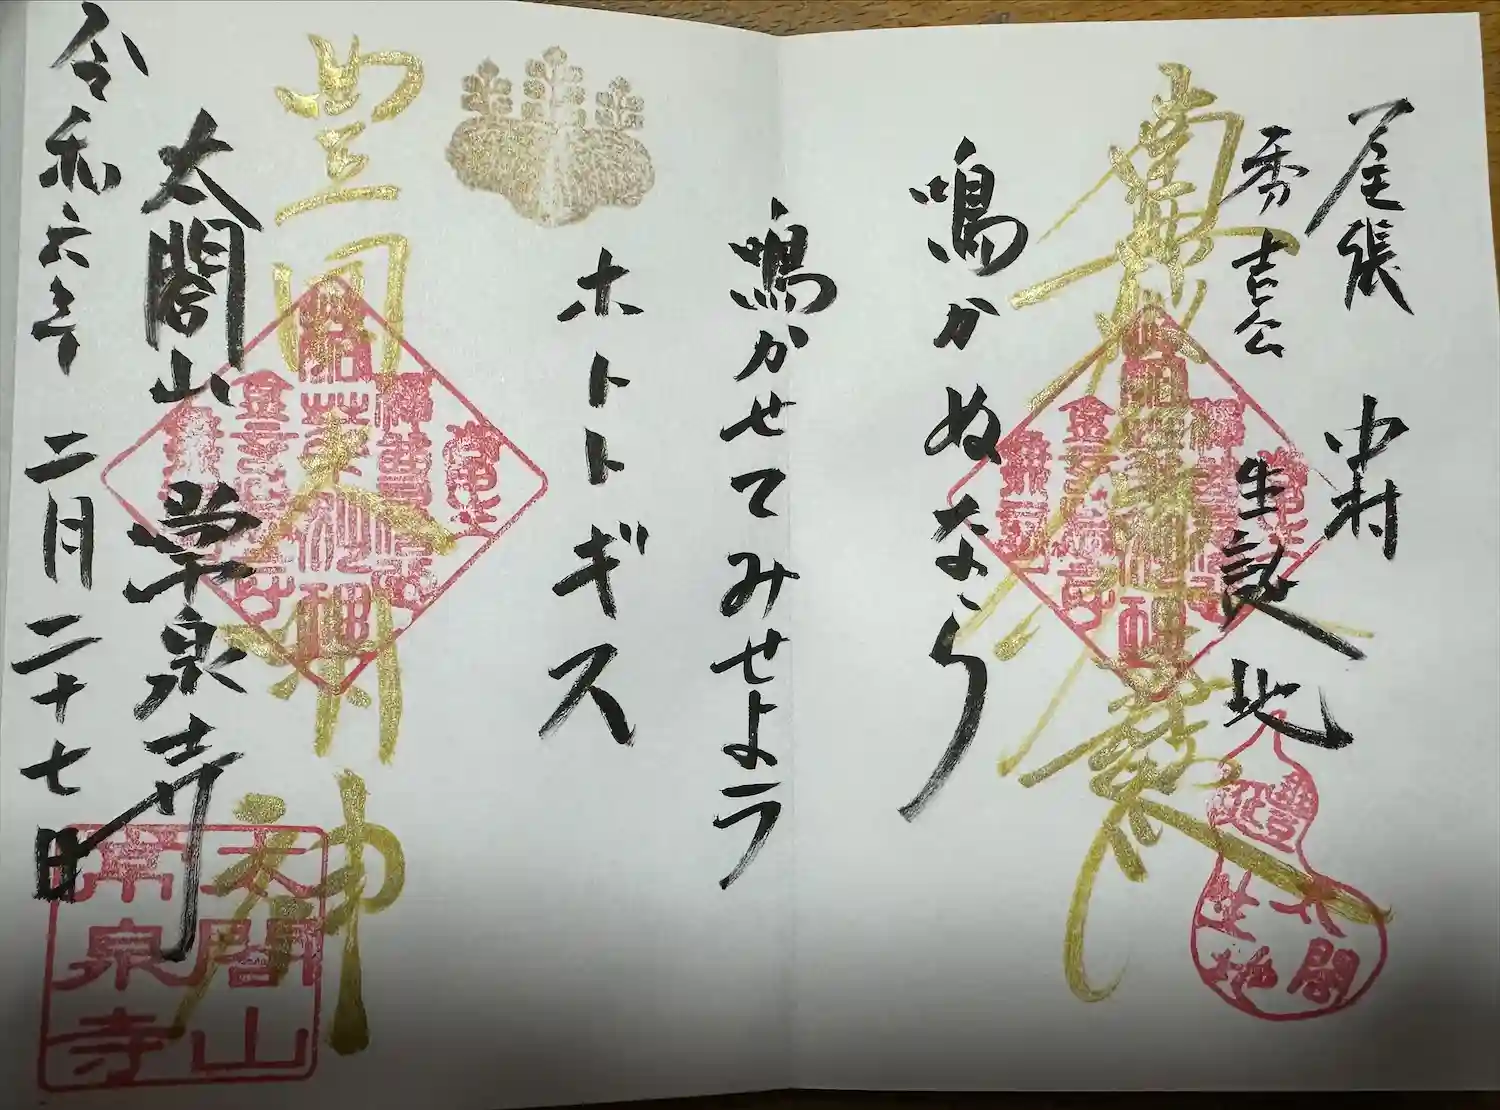 尾張 中村
秀吉公 生誕地
南無妙法蓮華経
鳴かぬなら
鳴かせてみせよう
ホトトギス
豊国大明神
太閤山 常泉寺
令和六年 二月二十七日
太閤
生地
太閤山
常泉寺